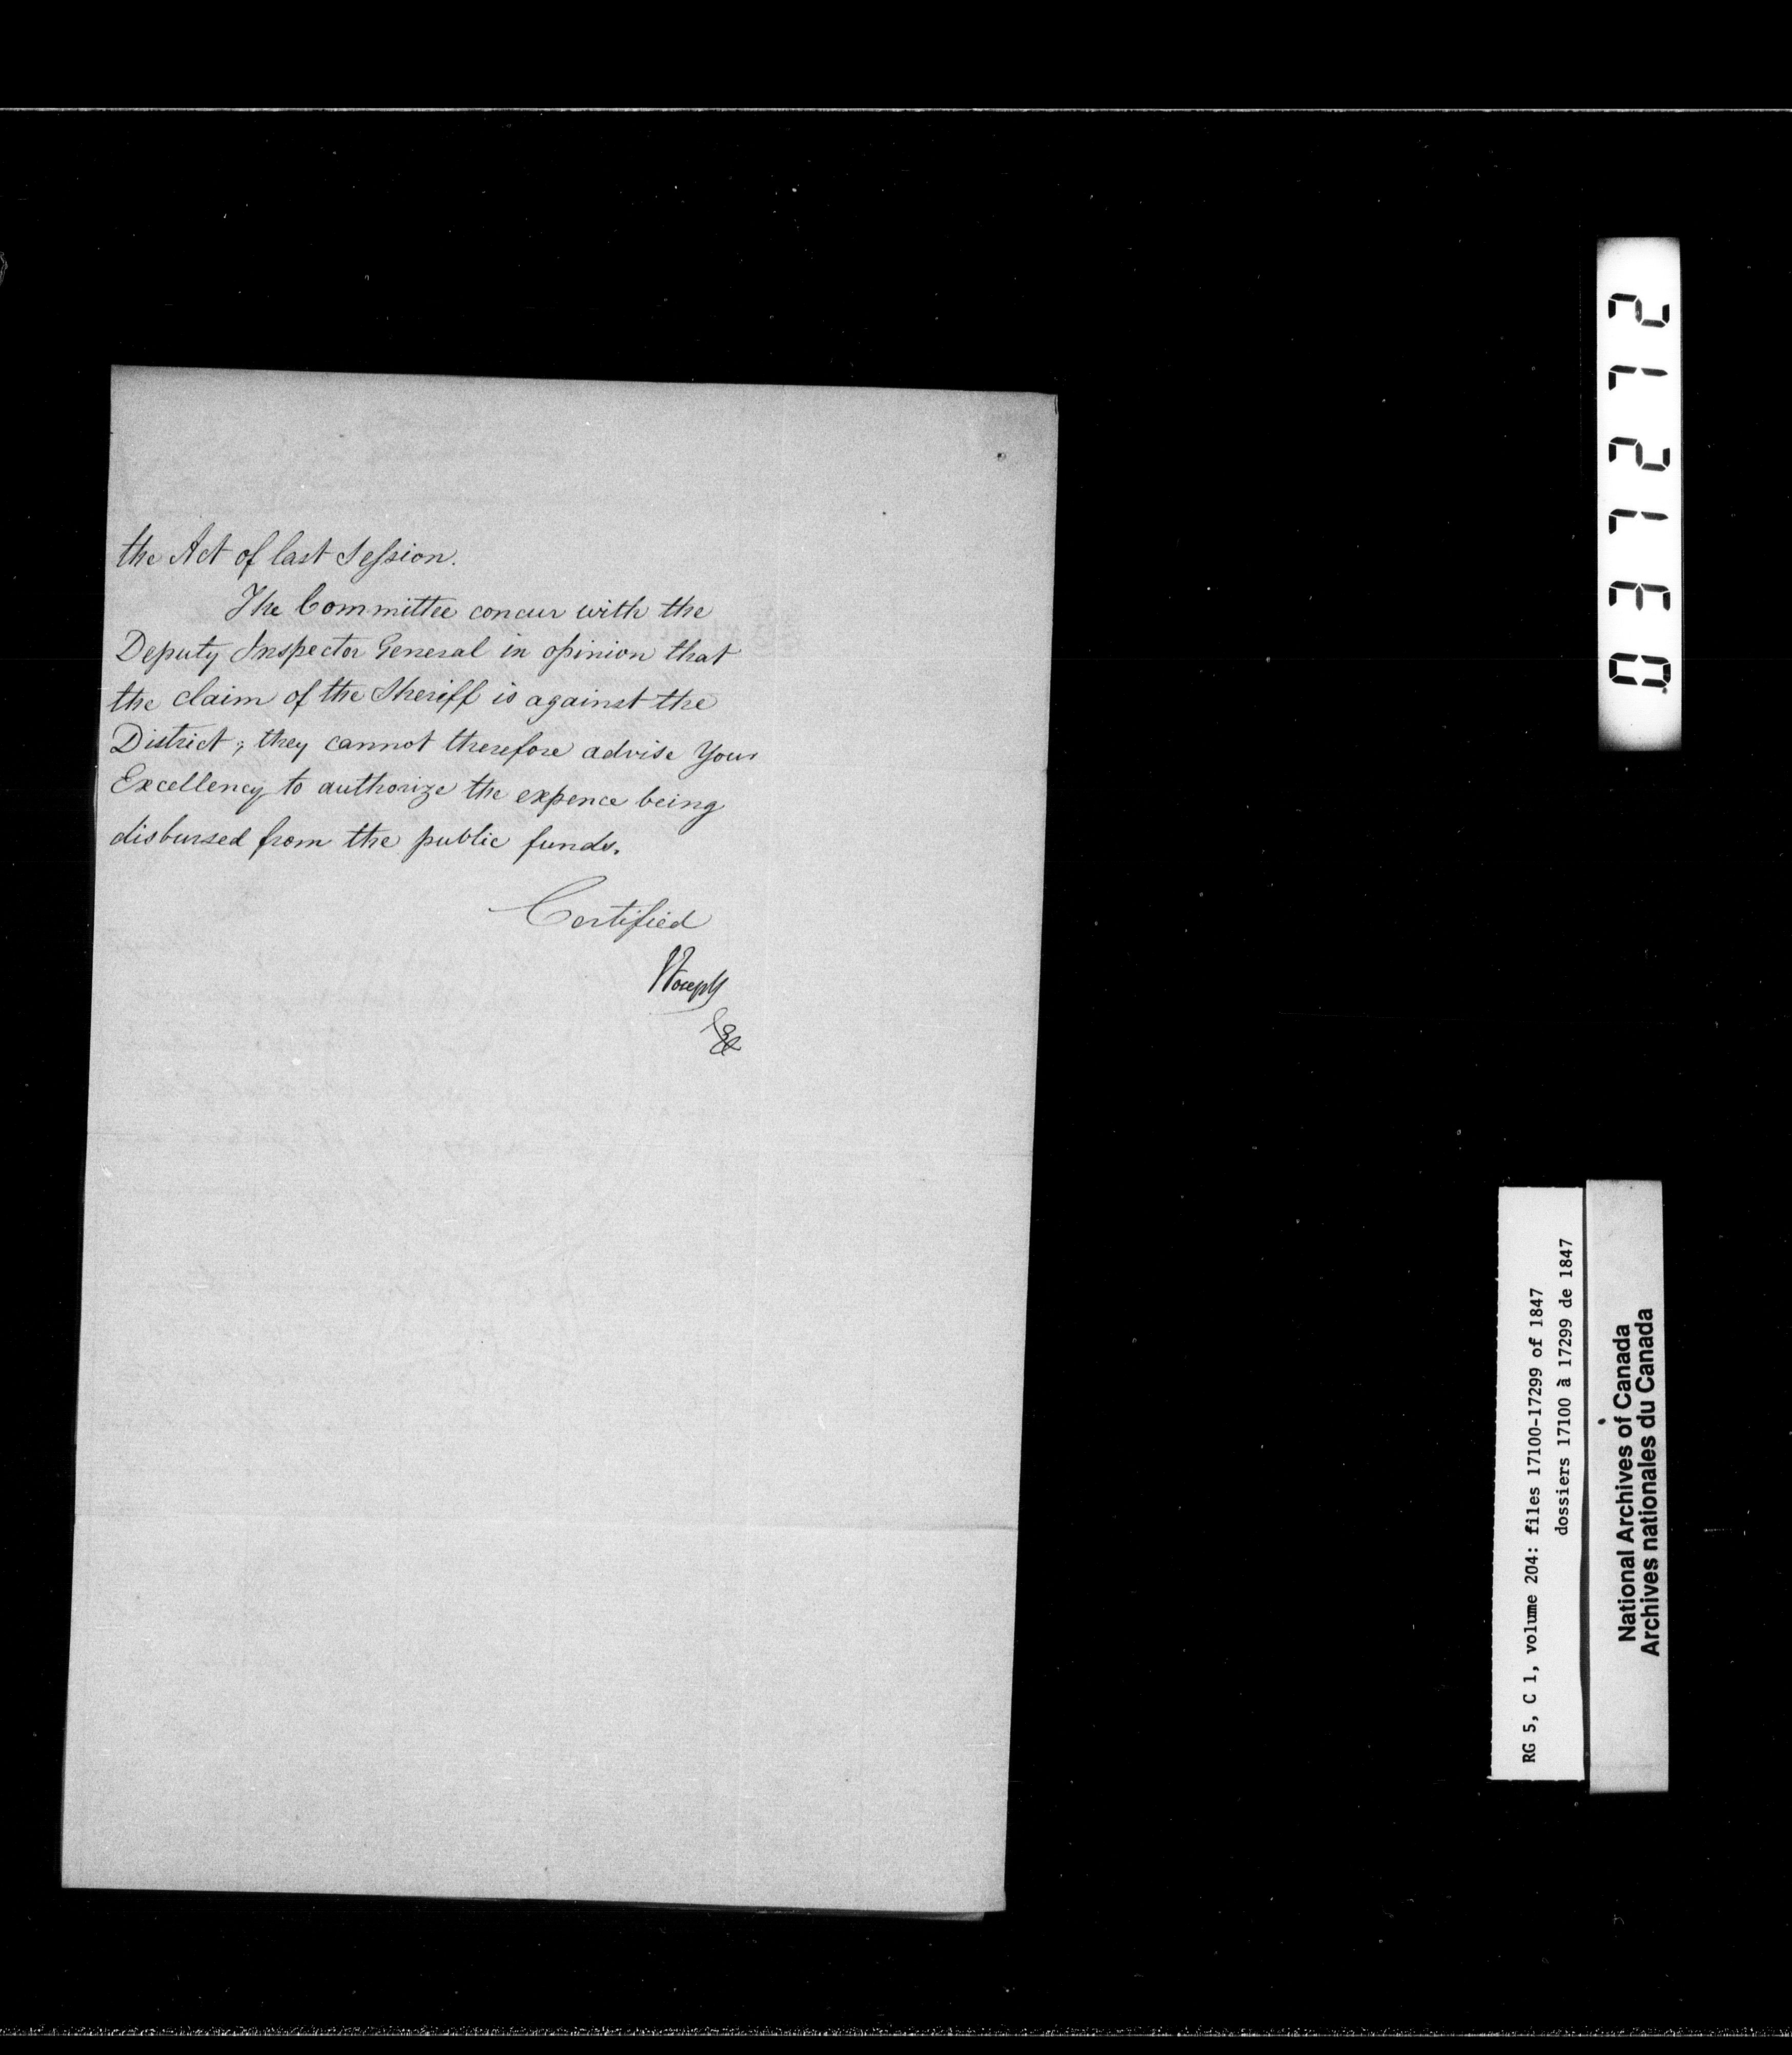 the Act of last Session.
The Committee concur with the
Deputy Inspector General in opinion that
the claim of the Sheriff is against the
District; they cannot therefore advise Your
Excellency to authorize the expence being
disbursed from the public funds.
Certified
037272
RG 5, C 1, volume 204: files 17100-17299 of 1847
dossiers 17100 à 17299 de 1847
National Archives of Canada
Archives nationales du Canada